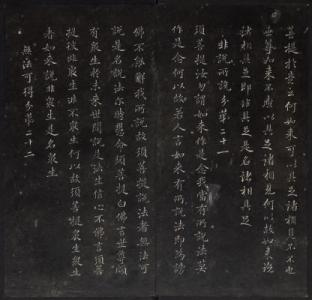 菩提於意云何如來可以具足諸相見不不也
世尊如來不應以具足諸相見何以故如來說
諸相具足即非具足是名諸相具足
非說所說分第二十一
須菩提汝勿謂如來作是念我當有所說法莫
作是念何以故若人言如來有所說法即為謗
佛不能解我所說故須菩提說法者無法可
說是名說法爾時慧命須菩提白佛言世尊頗
有眾生於未來世聞說是法生信心不佛言須菩
提彼非眾生非不眾生何以故須菩提眾生眾生
者如來說非眾生是名眾生
無法可得分第二十二